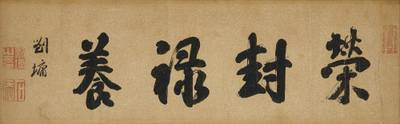 榮封祿養
劉墉